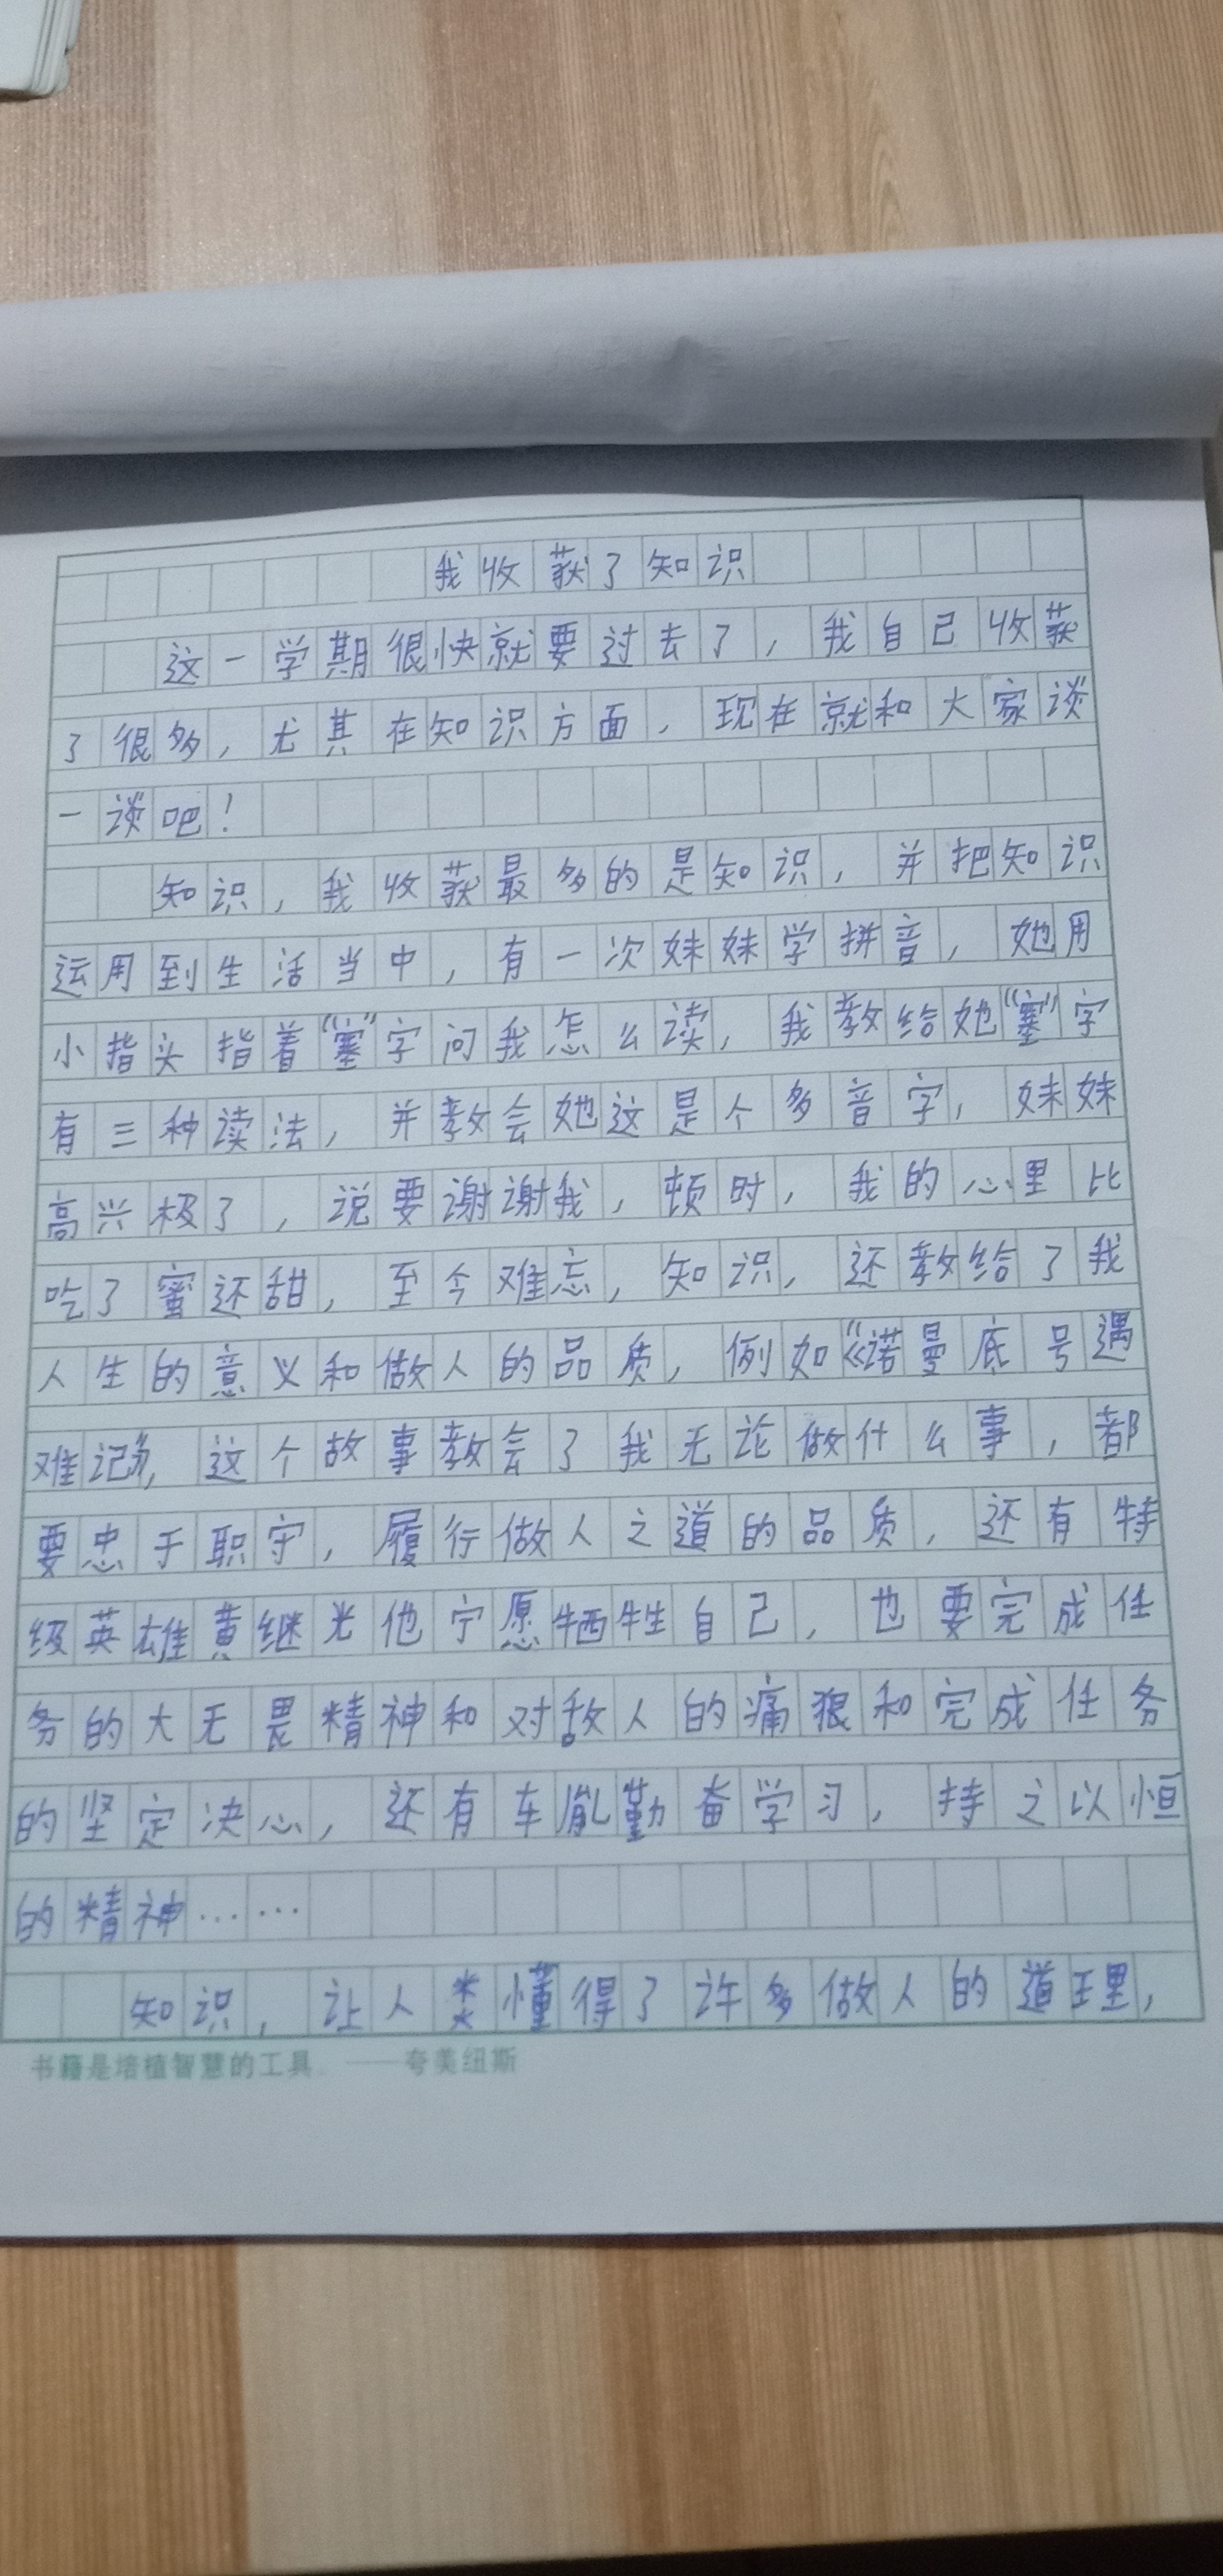 我收获了知识
这一学期很快就要过去了，我自己收获
了很多，尤其在知识方面，现在就和大家谈
一谈吧！
知识，我收获最多的是知识，并把知识
运用到生活当中，有一次妹妹学拼音，她用
小指头指着“塞”字问我怎么读，我教给她“塞”字
有三种读法，并教会她这是个多音字，妹妹
高兴极了，说要谢谢我，顿时，我的心里比
吃了蜜还甜，至今难忘，知识，还教给了我
人生的意义和做人的品质，例如《诺曼底号遇
难记》，这个故事教会了我无论做什么事，都
要忠于职守，履行做人之道的品质，还有特
级英雄黄继光他宁愿牺牲自己，也要完成任
务的大无畏精神和对敌人的痛狠和完成任务
的坚定决心，还有车胤勤奋学习，持之以恒
的精神……
知识，让人类懂得了许多做人的道理，
书籍是培植智慧的工具。——夸美纽斯